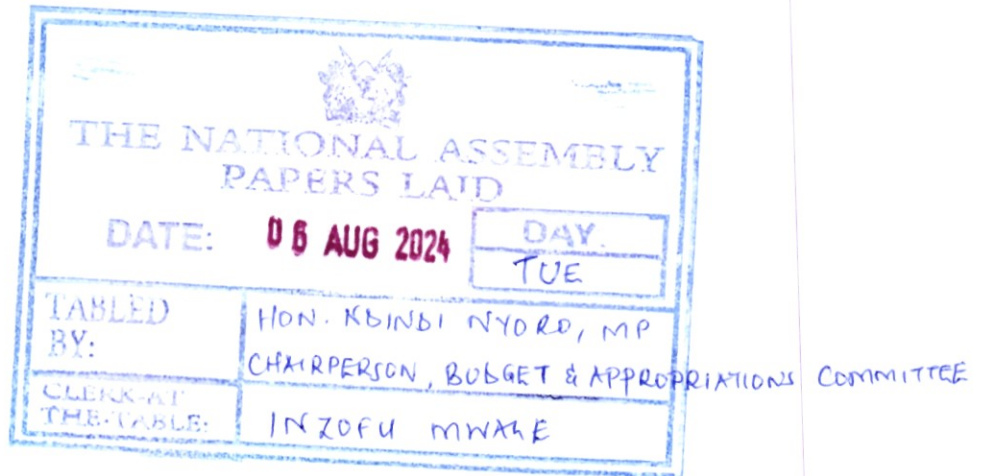 THE NATIONAL ASSEMBLY
PAPERS LAID
DATE: 06 AUG 2024
DAY.
TUE
TABLED
BY:
HON. NDINDI NYORO, MP
CHAIRPERSON, BUDGET & APPROPRIATIONS COMMITTEE
CLERK-AT
THE-TABLE:
INZOFU MWALE